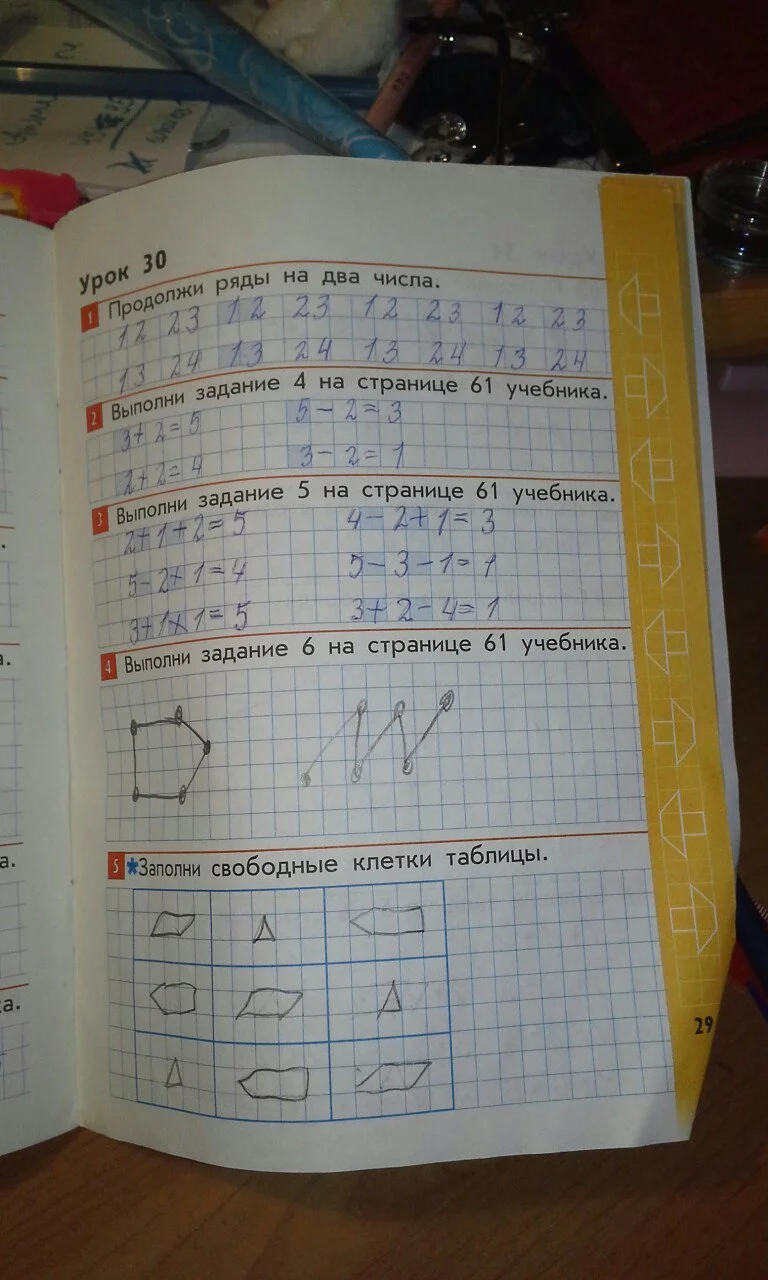 Урок 30
1 Продолжи ряды на два числа.
12 23 12 23 12 23 12 23
13 24 13 24 13 24 13 24
2 Выполни задание 4 на странице 61 учебника.
3+2=5 5-2=3
2+2=4 3-2=1
3 Выполни задание 5 на странице 61 учебника.
2+1+2=5 4-2+1=3
5-2+1=4 5-3-1=1
3+1+1=5 3+2-4=1
4 Выполни задание 6 на странице 61 учебника.
5 *Заполни свободные клетки таблицы.
29